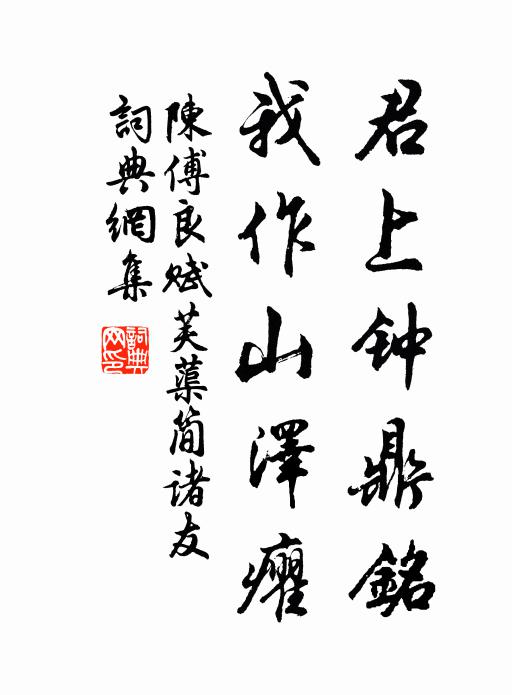 君上钟鼎銘
我作山澤癯
陳傅良赋芙蕖简诸友
詞典網集
詞典網印